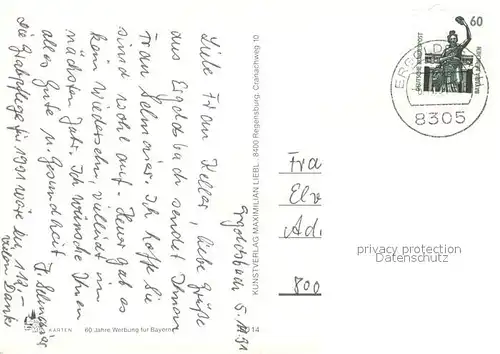 Ergoldsbach 5.11.91
Liebe Frau Keller, liebe Grüße
aus Ergoldsbach sendet Ihnen
Frau Selmaier. Ich hoffe Sie
sind wohl auf. Heuer gab es
kein wiedersehn, vielleicht im
nächsten Jahr. Ich wünsche Ihnen
alles Gute u. Gesundheit
F. Selmaier
Die Grabpflege für 1991 wäre DM 119,-
vielen Dank
KUNSTVERLAG MAXIMILIAN LIEBL · 8400 Regensburg, Cranachweg 10
KARTEN
60 Jahre Werbung für Bayern
14
60
DEUTSCHE BUNDESPOST
8305
Fra
Elv
Ad.
800
privacy protection
Datenschutz